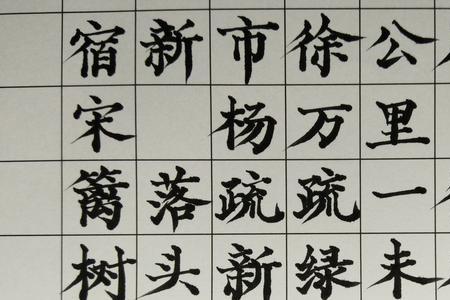 宿新市徐公
宋 杨万里
篱落疏疏一
树头新绿未